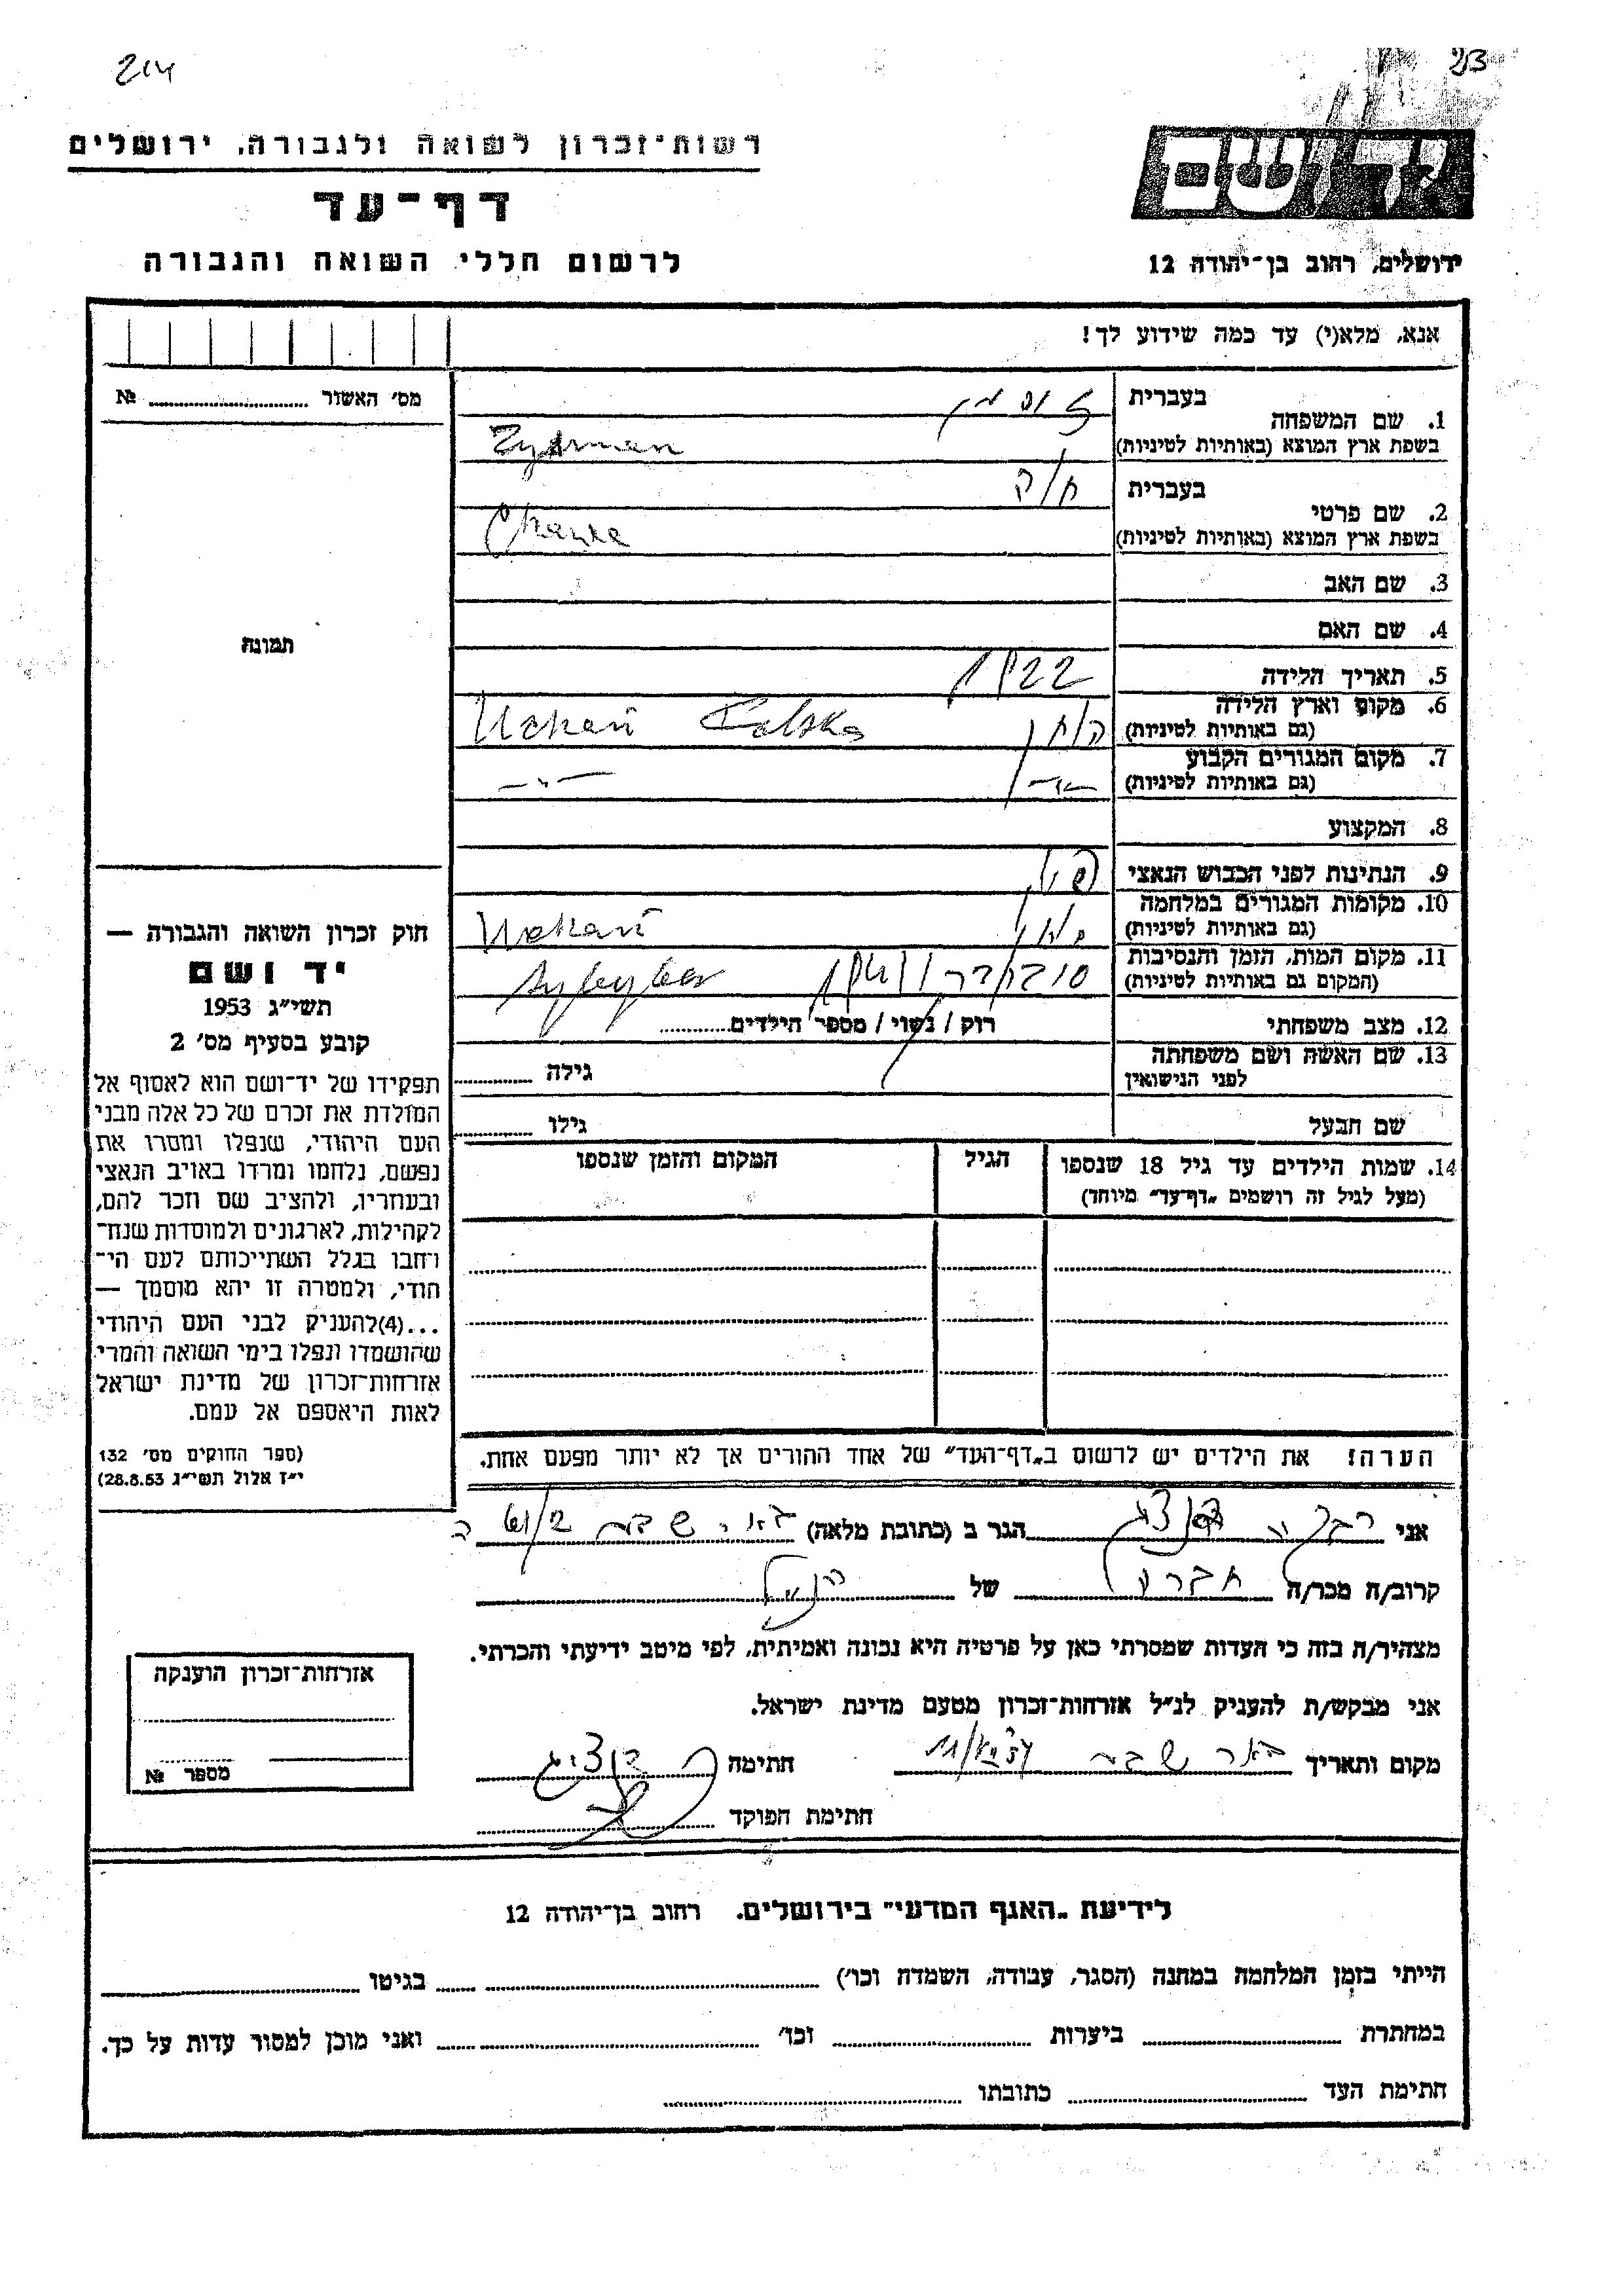 214
רשות-זכרון לשואה ולגבורה, ירושלים
דף-עד
לרשום חללי השואה והגבורה
יד ושם
ירושלים, רחוב בן-יהודה 12
אנא, מלא(י) עד כמה שידוע לך!
מס' האשור № 
תמונה
חוק זכרון השואה והגבורה —
יד ושם
תשי"ג 1953
קובע בסעיף מס' 2
תפקידו של יד-ושם הוא לאסוף אל
המולדת את זכרם של כל אלה מבני
העם היהודי, שנפלו ומסרו את
נפשם, נלחמו ומרדו באויב הנאצי
ובעוזריו, ולהציב שם וזכר להם,
לקהילות, לארגונים ולמוסדות שנח-
רחבו בגלל השתייכותם לעם הי-
הודי, ולמטרה זו יהא מוסמך —
...(4)להעניק לבני העם היהודי
שהושמדו ונפלו בימי השואה והמרי
אזרחות-זכרון של מדינת ישראל
לאות היאספם אל עמם.
(ספר החוקים מס' 132
י"ז אלול תשי"ג 28.8.53)
1. שם המשפחה
בעברית
בשפת ארץ המוצא (באותיות לטיניות) Zysman
2. שם פרטי
בעברית
בשפת ארץ המוצא (באותיות לטיניות)
3. שם האב
4. שם האם
5. תאריך הלידה 1922
6. מקום וארץ הלידה
(גם באותיות לטיניות)
7. מקום המגורים הקבוע
(גם באותיות לטיניות)
8. המקצוע
9. הנתינות לפני הכבוש הנאצי
10. מקומות המגורים במלחמה
(גם באותיות לטיניות)
11. מקום המות, הזמן והנסיבות
(המקום גם באותיות לטיניות)
12. מצב משפחתי רוק / נשוי / מספר הילדים
13. שם האשה ושם משפחתה
לפני הנישואין גילה
שם הבעל גילו
14. שמות הילדים עד גיל 18 שנספו
(מעל לגיל זה רושמים „דף-עד" מיוחד)
הגיל
המקום והזמן שנספו
הערה! את הילדים יש לרשום ב„דף-העד" של אחד ההורים אך לא יותר מפעם אחת.
אני רבקה דנציג הגר ב (כתובת מלאה) באר שבע
קרוב/ה מכר/ה חברה של הנ"ל
מצהיר/ה בזה כי העדות שמסרתי כאן על פרטיה היא נכונה ואמיתית, לפי מיטב ידיעתי והכרתי.
אני מבקש/ת להעניק לנ"ל אזרחות-זכרון מטעם מדינת ישראל.
מקום ותאריך באר שבע חתימה ר. דנציג
חתימת הפוקד
אזרחות-זכרון הוענקה
מספר №
לידיעת „האגף המדעי" בירושלים. רחוב בן-יהודה 12
הייתי בזמן המלחמה במחנה (הסגר, עבודה, השמדה וכו') בגיטו
במחתרת ביערות וכו' ואני מוכן למסור עדות על כך.
חתימת העד כתובתו